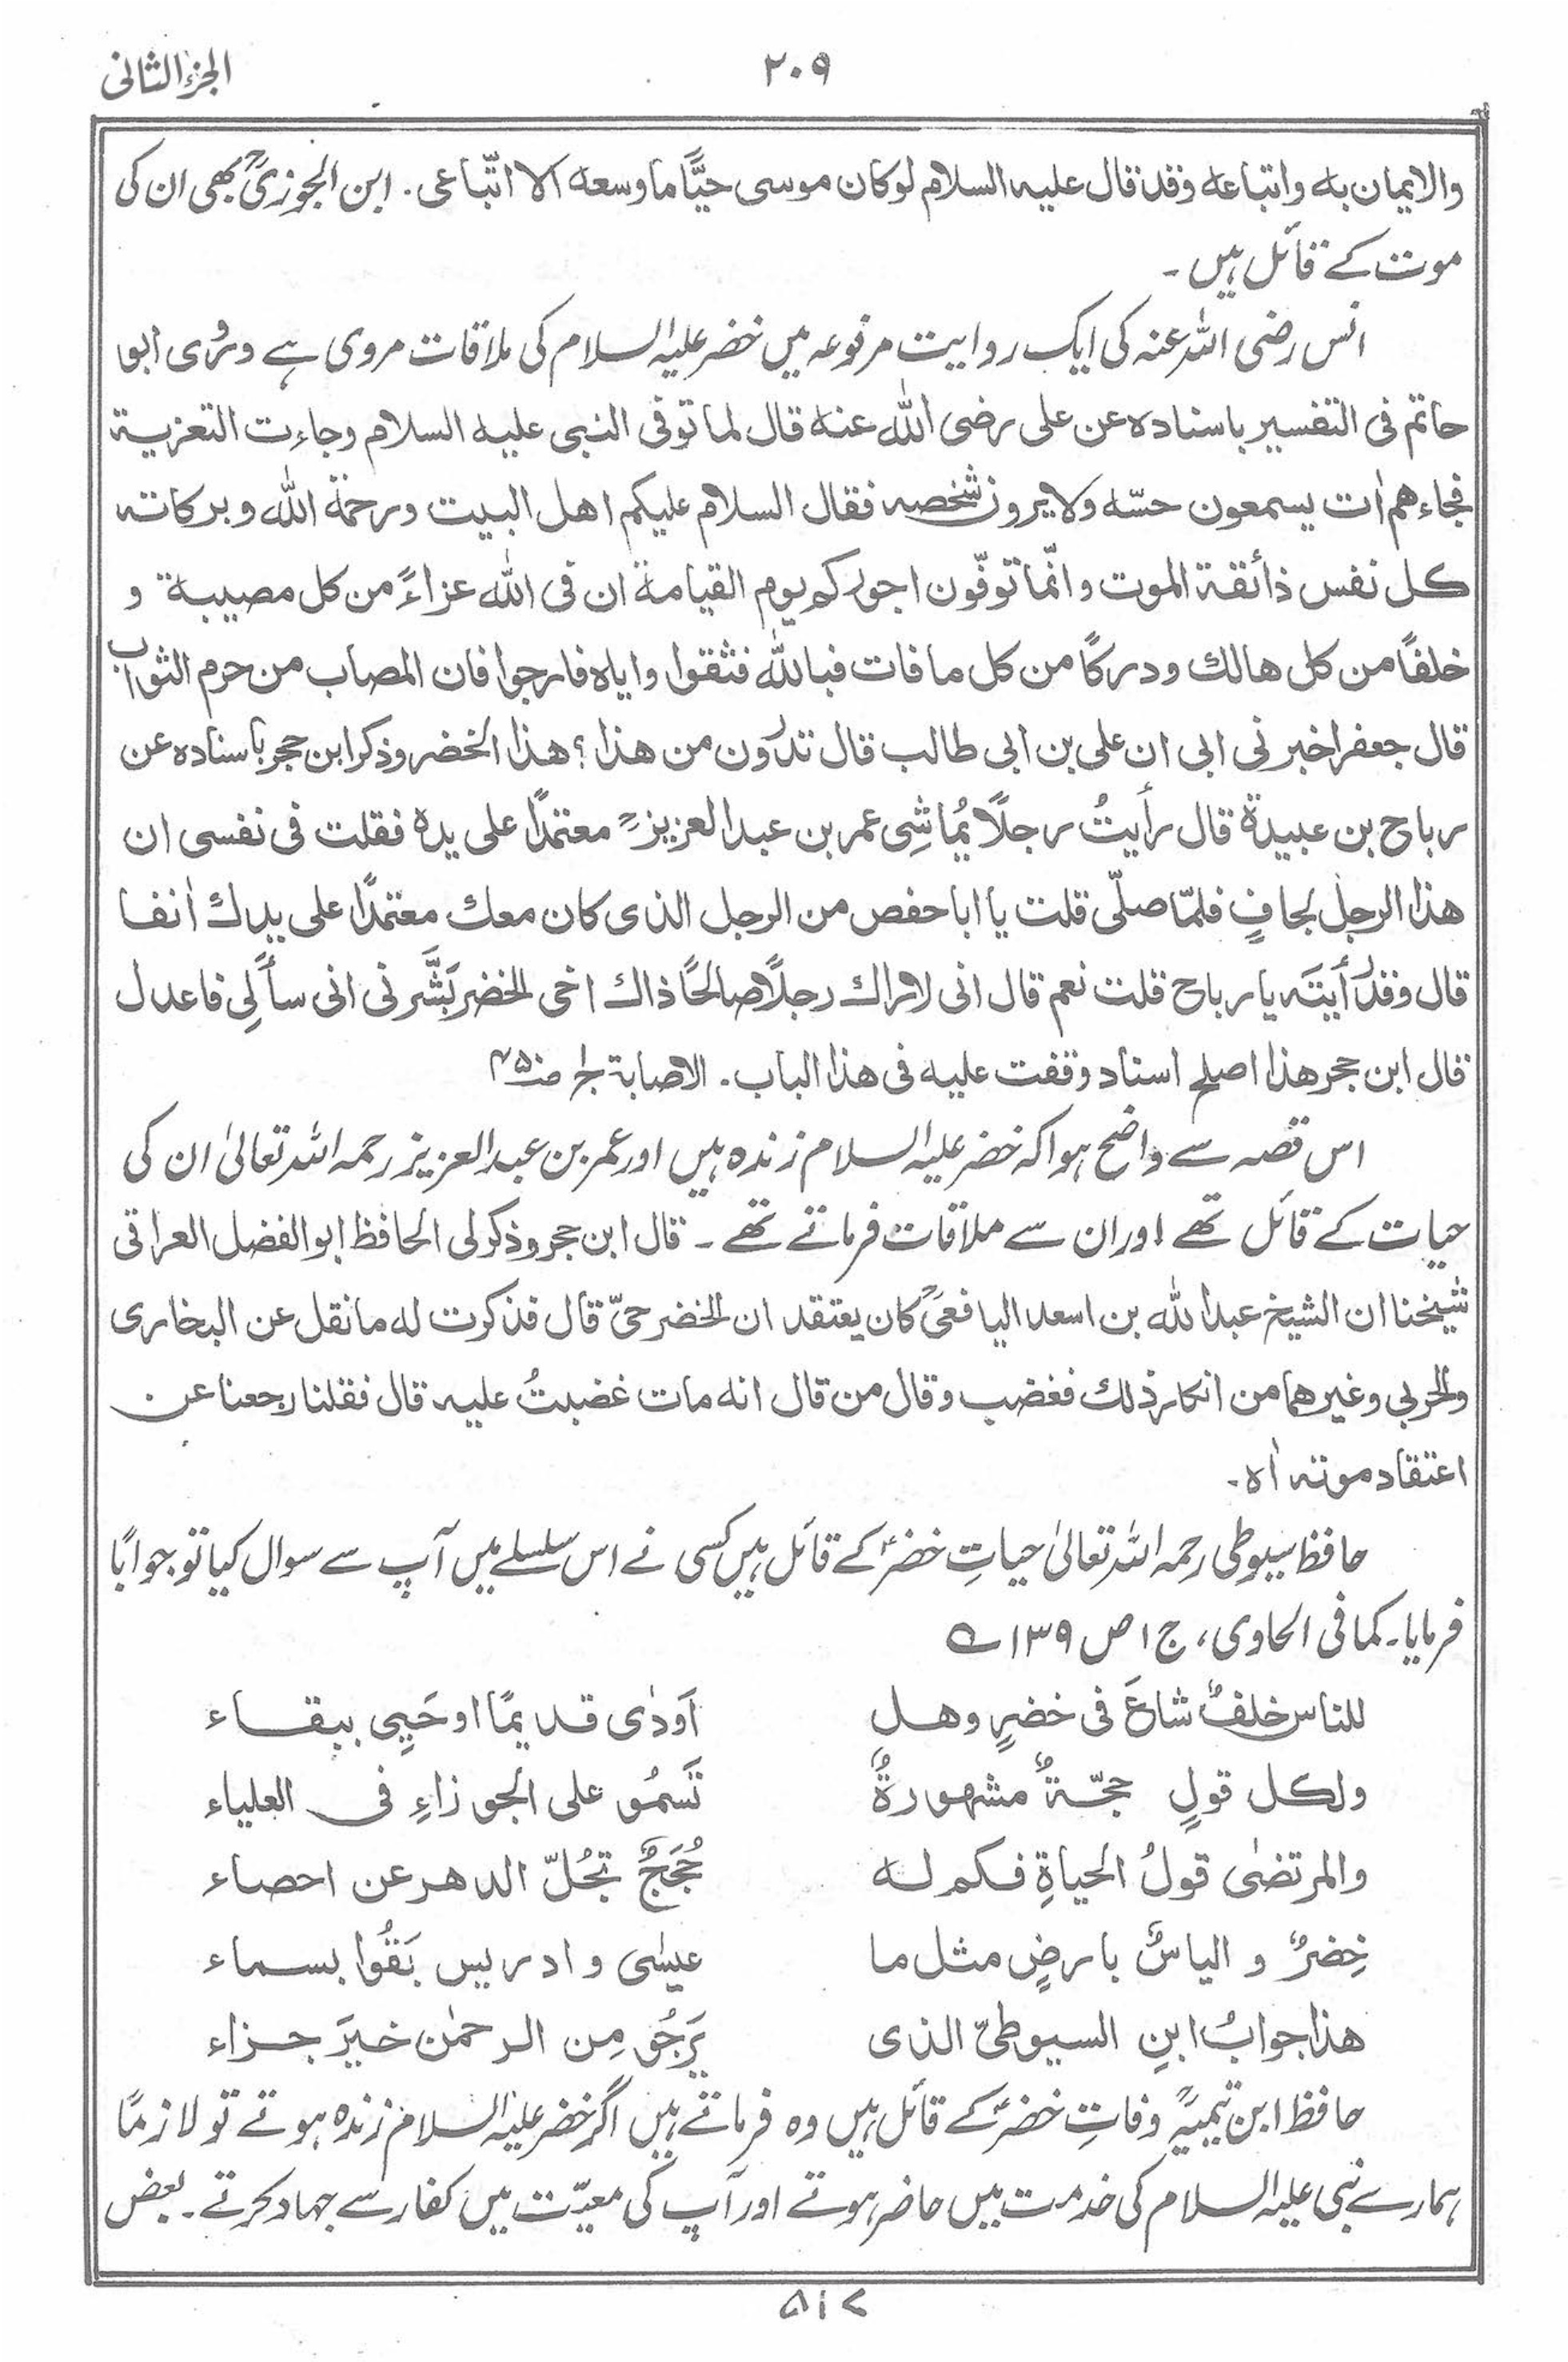 الجزء الثانی
۲۰۹
والایمان بہ واتباعہ وقد قال علیہ السلام لو کان موسی حیًّا ما وسعہ الا اتّباعی ۔ ابن الجوزیؒ بھی ان کی
موت کے قائل ہیں ۔
انس رضی اللہ عنہ کی ایک روایت مرفوعہ میں خضر علیہ السلام کی ملاقات مروی ہے ورُوی ابو
حاتم فی التفسیر باسنادہ عن علی رضی اللہ عنہ قال لما توفی النبی علیہ السلام وجاءت التعزیۃ
فجاءھم اٰت یسمعون حسّہ ولا یرون شخصہ فقال السلام علیکم اھل البیت ورحمۃ اللہ وبرکاتہ
کل نفس ذائقۃ الموت وانّما توفّون اجورکم یوم القیامۃ ان فی اللہ عزاءً من کل مصیبۃ و
خلفًا من کل ھالك ودرکًا من کل ما فات فباللہ فثقوا وایاہ فارجوا فان المصاب من حرم الثواب
قال جعفر اخبرنی ابی ان علی بن ابی طالب قال تدرون من ھذا ؟ ھذا الخضر وذکر ابن حجر باسنادہ عن
رباح بن عبیدۃ قال رأیتُ رجلًا یُماشِی عمر بن عبد العزیزؒ معتمدًا علی یدہ فقلت فی نفسی ان
ھذا الرجل لجافٍ فلمّا صلّی قلت یا ابا حفص من الرجل الذی کان معك معتمدًا علی یدك اٰنفا
قال وقد رأیتَہ یا رباح قلت نعم قال انی لاراك رجلًا صالحًا ذاك اخی الخضر بَشَّرنی انی سأَلِی فاعدل
قال ابن حجر ھذا اصلح اسناد وقفت علیہ فی ھذا الباب ۔ الاصابۃ ج۱ ص۴۵۰
اس قصہ سے واضح ہوا کہ خضر علیہ السلام زندہ ہیں اور عمر بن عبد العزیز رحمہ اللہ تعالیٰ ان کی
حیات کے قائل تھے اور ان سے ملاقات فرماتے تھے ۔ قال ابن حجر وذکر لی الحافظ ابو الفضل العراقی
شیخنا ان الشیخ عبد اللہ بن اسعد الیافعیؒ کان یعتقد ان الخضر حیّ قال فذکرت لہ ما نقل عن البخاری
والحربی وغیرھما من انکار ذلك فغضب وقال من قال انہ مات غضبتُ علیہ قال فقلنا رجعنا عن
اعتقاد موتہ اٰہ ۔
حافظ سیوطی رحمہ اللہ تعالیٰ حیاتِ خضرؑ کے قائل ہیں کسی نے اس سلسلے میں آپ سے سوال کیا تو جوابًا
فرمایا۔ کما فی الحاوی، ج ۱ ص ۱۳۹ ؎
للناس خلفٌ شاعَ فی خضرٍ وھل اَودٰی قدیمًا او حَیِیَ ببقاء
ولکل قولٍ حجّۃٌ مشھورۃٌ تَسمُو علی الجوزاءِ فی العلیاء
والمرتضٰی قولُ الحیاۃِ فکم لہ حُجَجٌ تجُلّ الدھر عن احصاء
خِضرٌ و الیاسٌ بارضٍ مثل ما عیسٰی و ادریس بَقُوا بسماء
ھذا جوابُ ابنِ السیوطیّ الذی یَرجُو مِن الرحمٰن خیرَ جزاء
حافظ ابن تیمیہؒ وفاتِ خضرؑ کے قائل ہیں وہ فرماتے ہیں اگر خضر علیہ السلام زندہ ہوتے تو لازمًا
ہمارے نبی علیہ السلام کی خدمت میں حاضر ہوتے اور آپ کی معیّت میں کفار سے جہاد کرتے ۔ بعض
۵۱۲